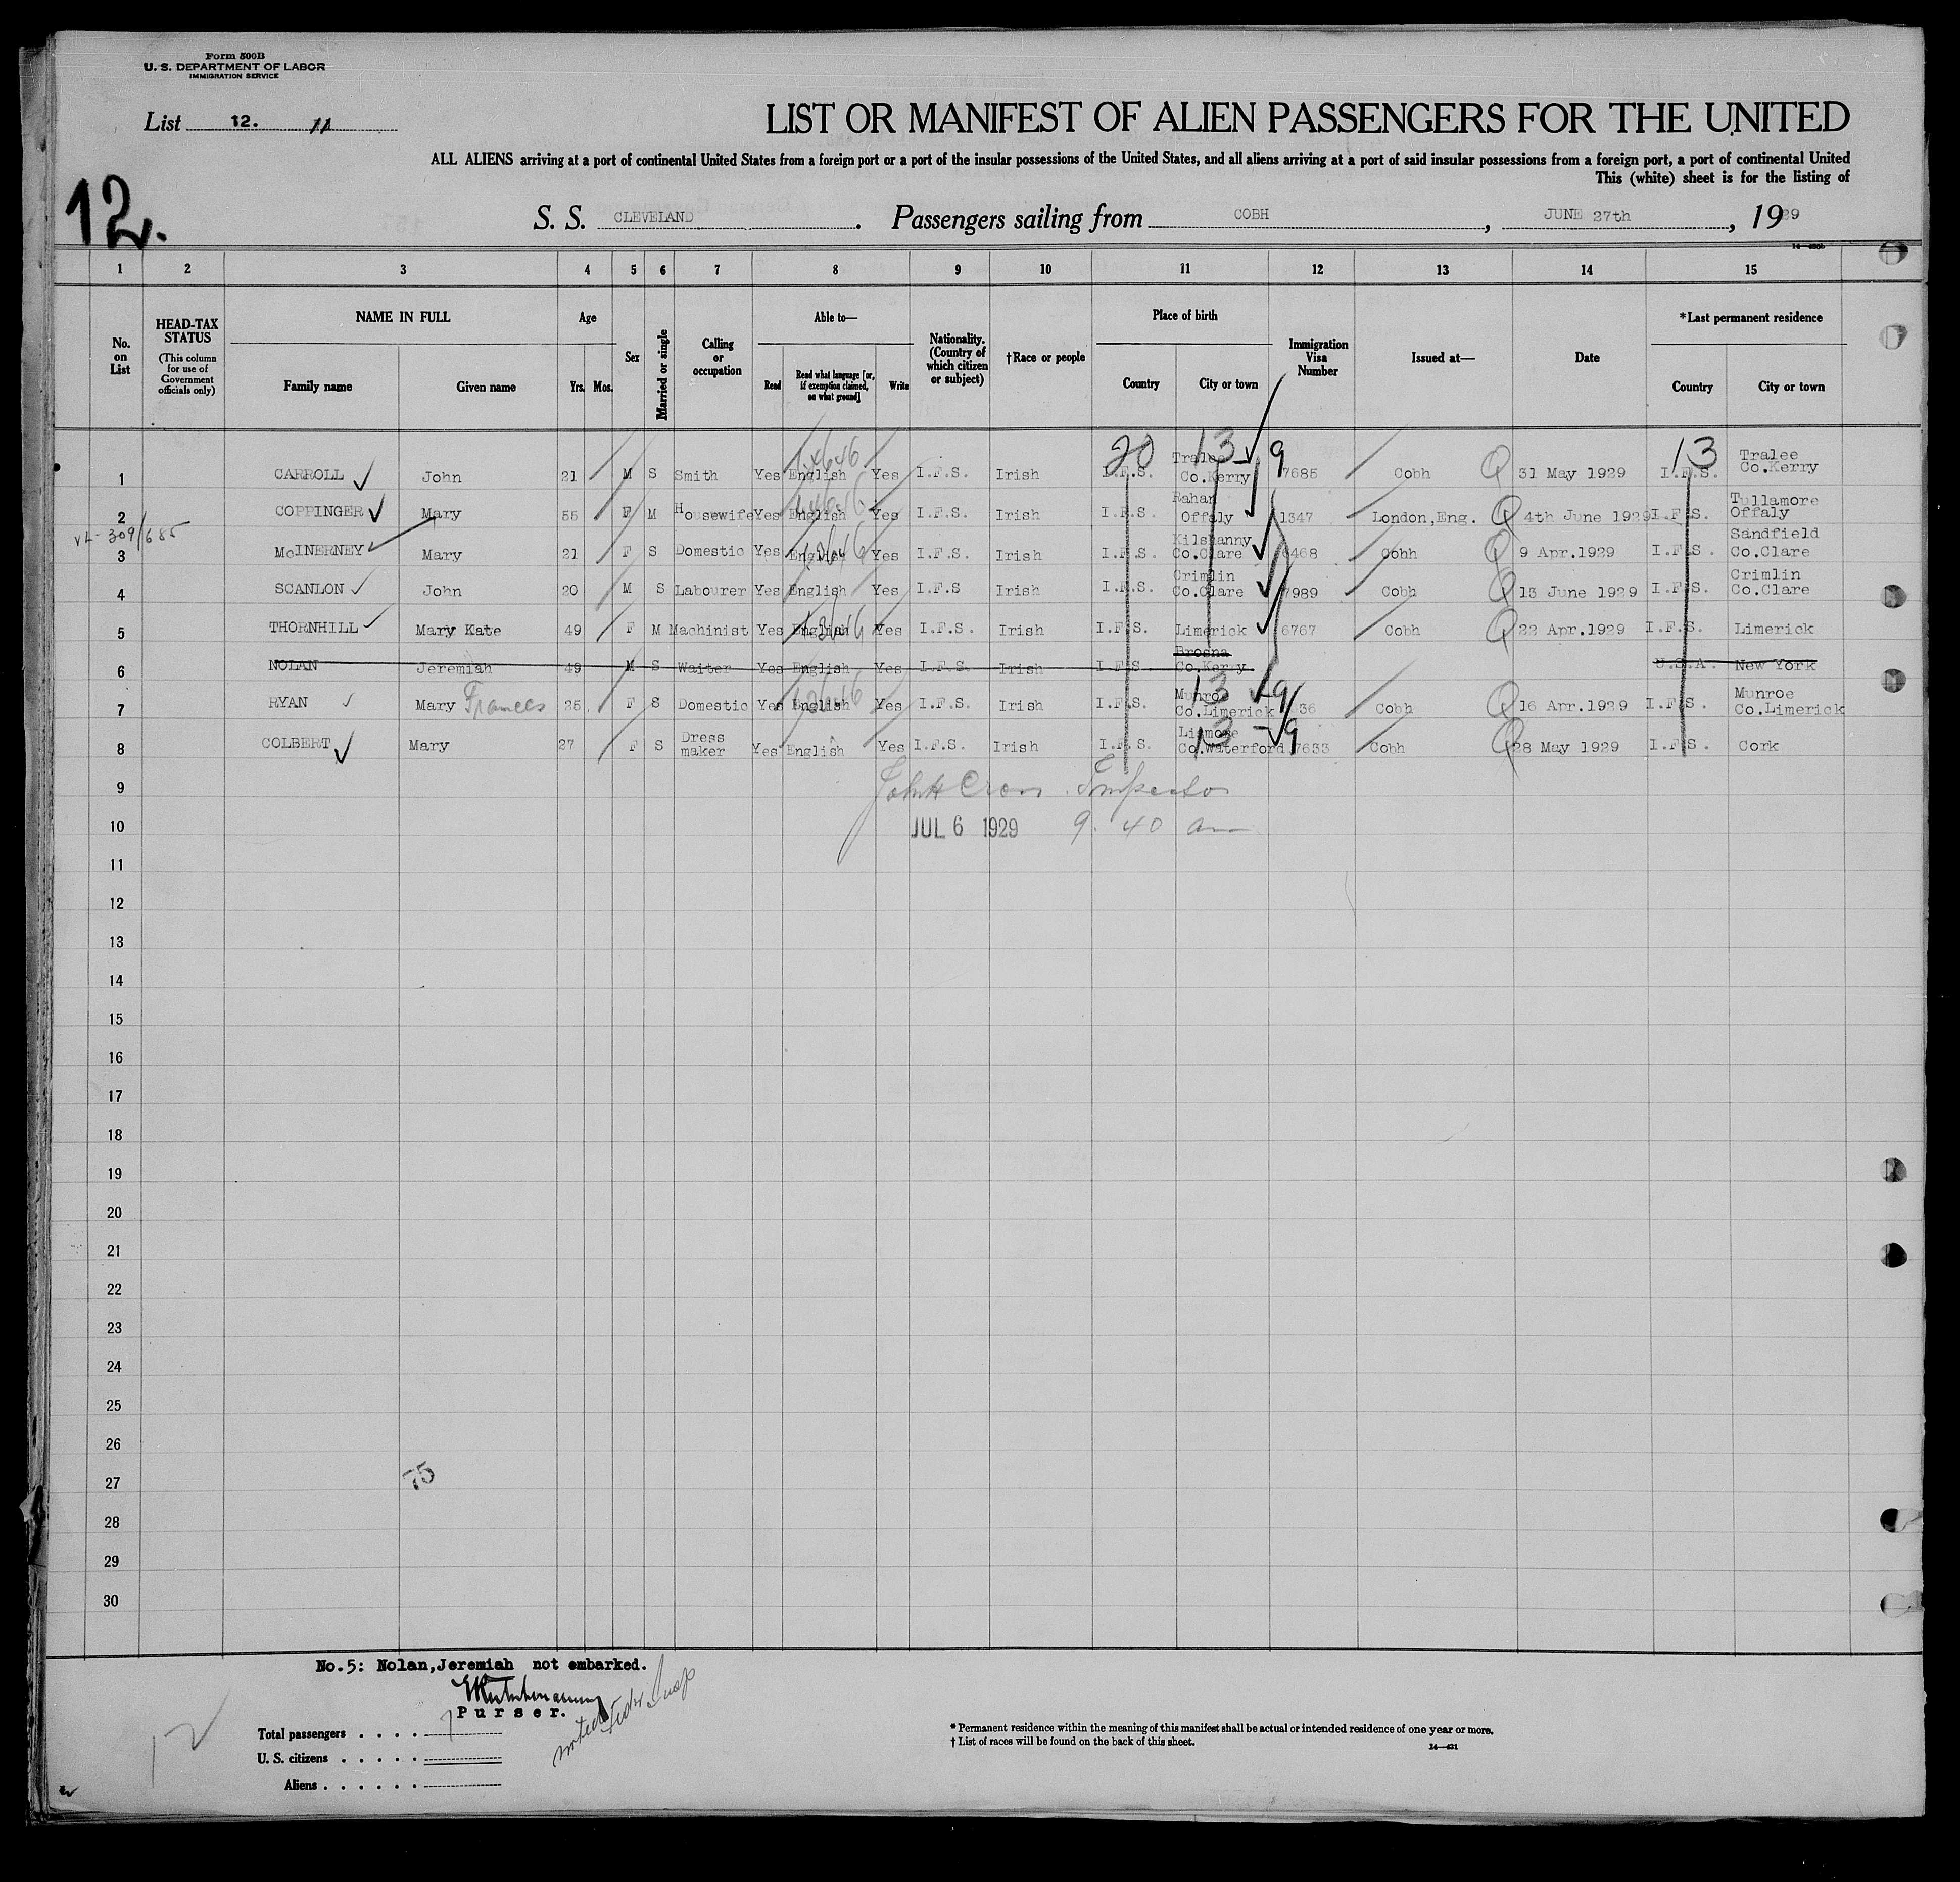 Form 500B
U. S. DEPARTMENT OF LABOR
IMMIGRATION SERVICE
List 12. 11
LIST OR MANIFEST OF ALIEN PASSENGERS FOR THE UNITED
ALL ALIENS arriving at a port of continental United States from a foreign port or a port of the insular possessions of the United States, and all aliens arriving at a port of said insular possessions from a foreign port, a port of continental United
This (white) sheet is for the listing of
12.
S. S. CLEVELAND. Passengers sailing from COBH, JUNE 27th, 1929
1 2 3 4 5 6 7 8 9 10 11 12 13 14 15
No. on List
HEAD-TAX STATUS (This column for use of Government officials only)
NAME IN FULL
Family name Given name
Age
Yrs. Mos.
Sex
Married or single
Calling or occupation
Able to—
Read
Read what language [or, if exemption claimed, on what ground]
Write
Nationality. (Country of which citizen or subject)
†Race or people
Place of birth
Country City or town
Immigration Visa Number
Issued at—
Date
*Last permanent residence
Country City or town
20 13 9 13
1 CARROLL John 21 M S Smith Yes English Yes I.F.S. Irish I.F.S. Tralee Co.Kerry 7685 Cobh Q 31 May 1929 I.F.S. Tralee Co.Kerry
2 COPPINGER Mary 55 F M Housewife Yes English Yes I.F.S. Irish I.F.S. Rahan Offaly 1347 London,Eng. Q 4th June 1929 I.F.S. Tullamore Offaly
3 McINERNEY Mary 21 F S Domestic Yes English Yes I.F.S. Irish I.F.S. Kilshanny Co.Clare 6468 Cobh Q 9 Apr.1929 I.F.S. Sandfield Co.Clare
4 SCANLON John 20 M S Labourer Yes English Yes I.F.S Irish I.F.S. Crimlin Co.Clare 7989 Cobh Q 13 June 1929 I.F.S. Crimlin Co.Clare
5 THORNHILL Mary Kate 49 F M Machinist Yes English Yes I.F.S. Irish I.F.S. Limerick 6767 Cobh Q 22 Apr.1929 I.F.S. Limerick
6 NOLAN Jeremiah 49 M S Waiter Yes English Yes I.F.S. Irish I.F.S. Brosna Co.Kerry U.S.A. New York
7 RYAN Mary Frances 25 F S Domestic Yes English Yes I.F.S. Irish I.F.S. Munroe Co.Limerick 36 Cobh Q 16 Apr.1929 I.F.S. Munroe Co.Limerick
8 COLBERT Mary 27 F S Dress maker Yes English Yes I.F.S. Irish I.F.S. Lismore Co.Waterford 7633 Cobh Q 28 May 1929 I.F.S. Cork
9
10 JUL 6 1929 9.40 am
11
12
13
14
15
16
17
18
19
20
21
22
23
24
25
26
27 75
28
29
30
No.5: Nolan,Jeremiah not embarked.
Purser.
Total passengers 7
U. S. citizens
Aliens
12
* Permanent residence within the meaning of this manifest shall be actual or intended residence of one year or more.
† List of races will be found on the back of this sheet.
14—431